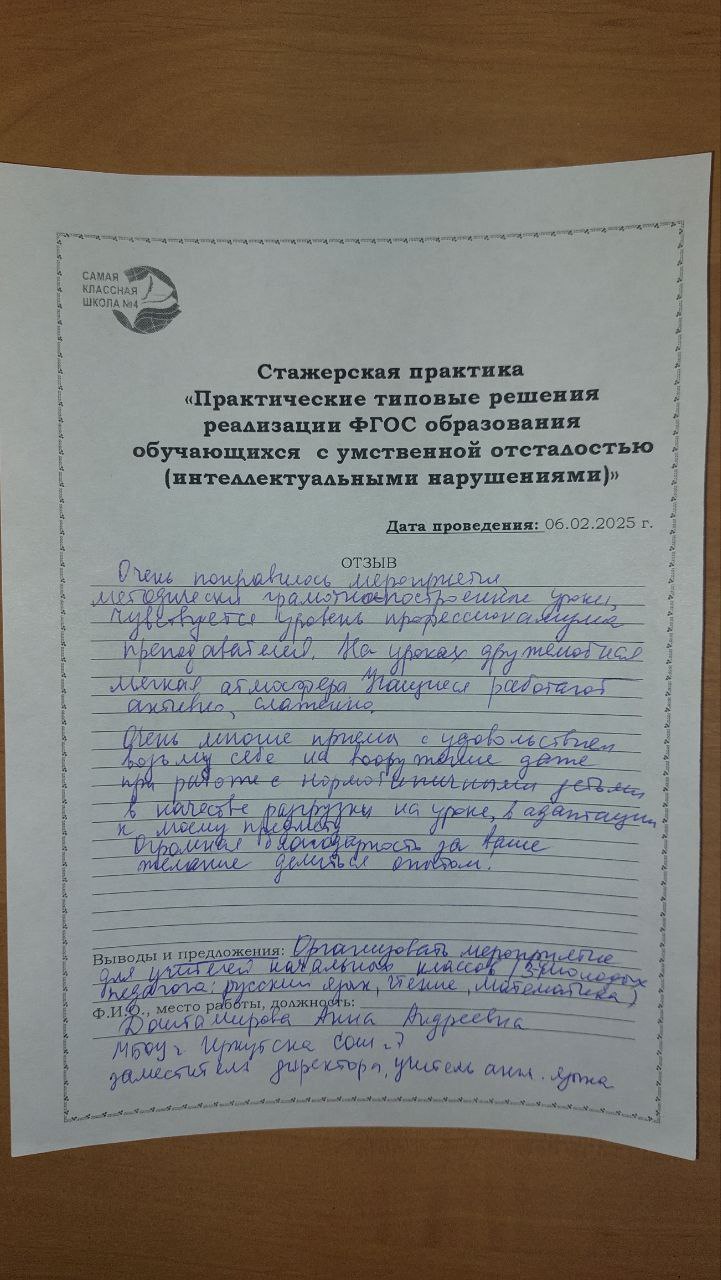 САМАЯ
КЛАССНАЯ
ШКОЛА №4
Стажерская практика
«Практические типовые решения
реализации ФГОС образования
обучающихся с умственной отсталостью
(интеллектуальными нарушениями)»
Дата проведения: 06.02.2025 г.
ОТЗЫВ
Очень понравилось мероприятие
методически грамотно построенные уроки,
Чувствуется уровень профессионализма
преподавателей. На уроках дружелюбная
мягкая атмосфера Учащиеся работают
активно, слаженно.
Очень многие приемы с удовольствием
возьму себе на вооружение даже
при работе с нормотипичными детьми
в качестве разгрузки на уроке, в адаптации
к моему предмету
Огромная благодарность за ваше
желание делиться опытом.
Выводы и предложения: Организовать мероприятие
для учителей начальных классов (3 молодых
педагога: русский язык, чтение, математика)
Ф.И.О., место работы, должность:
Анна Андреевна
МБОУ г Иркутска СОШ
заместитель директора, учитель англ. языка